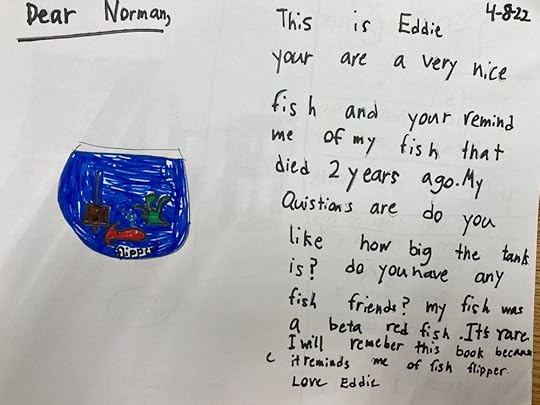 Dear Norman,
4-8-22
This is Eddie
your are a very nice
fish and your remind
me of my fish that
died 2 years ago. My
Quistions are do you
like how big the tank
is? do you have any
fish friends? my fish was
a beta red fish. It's rare
I will remeber this book becaus
e it reminds me of fish flipper
Love Eddie
flipper